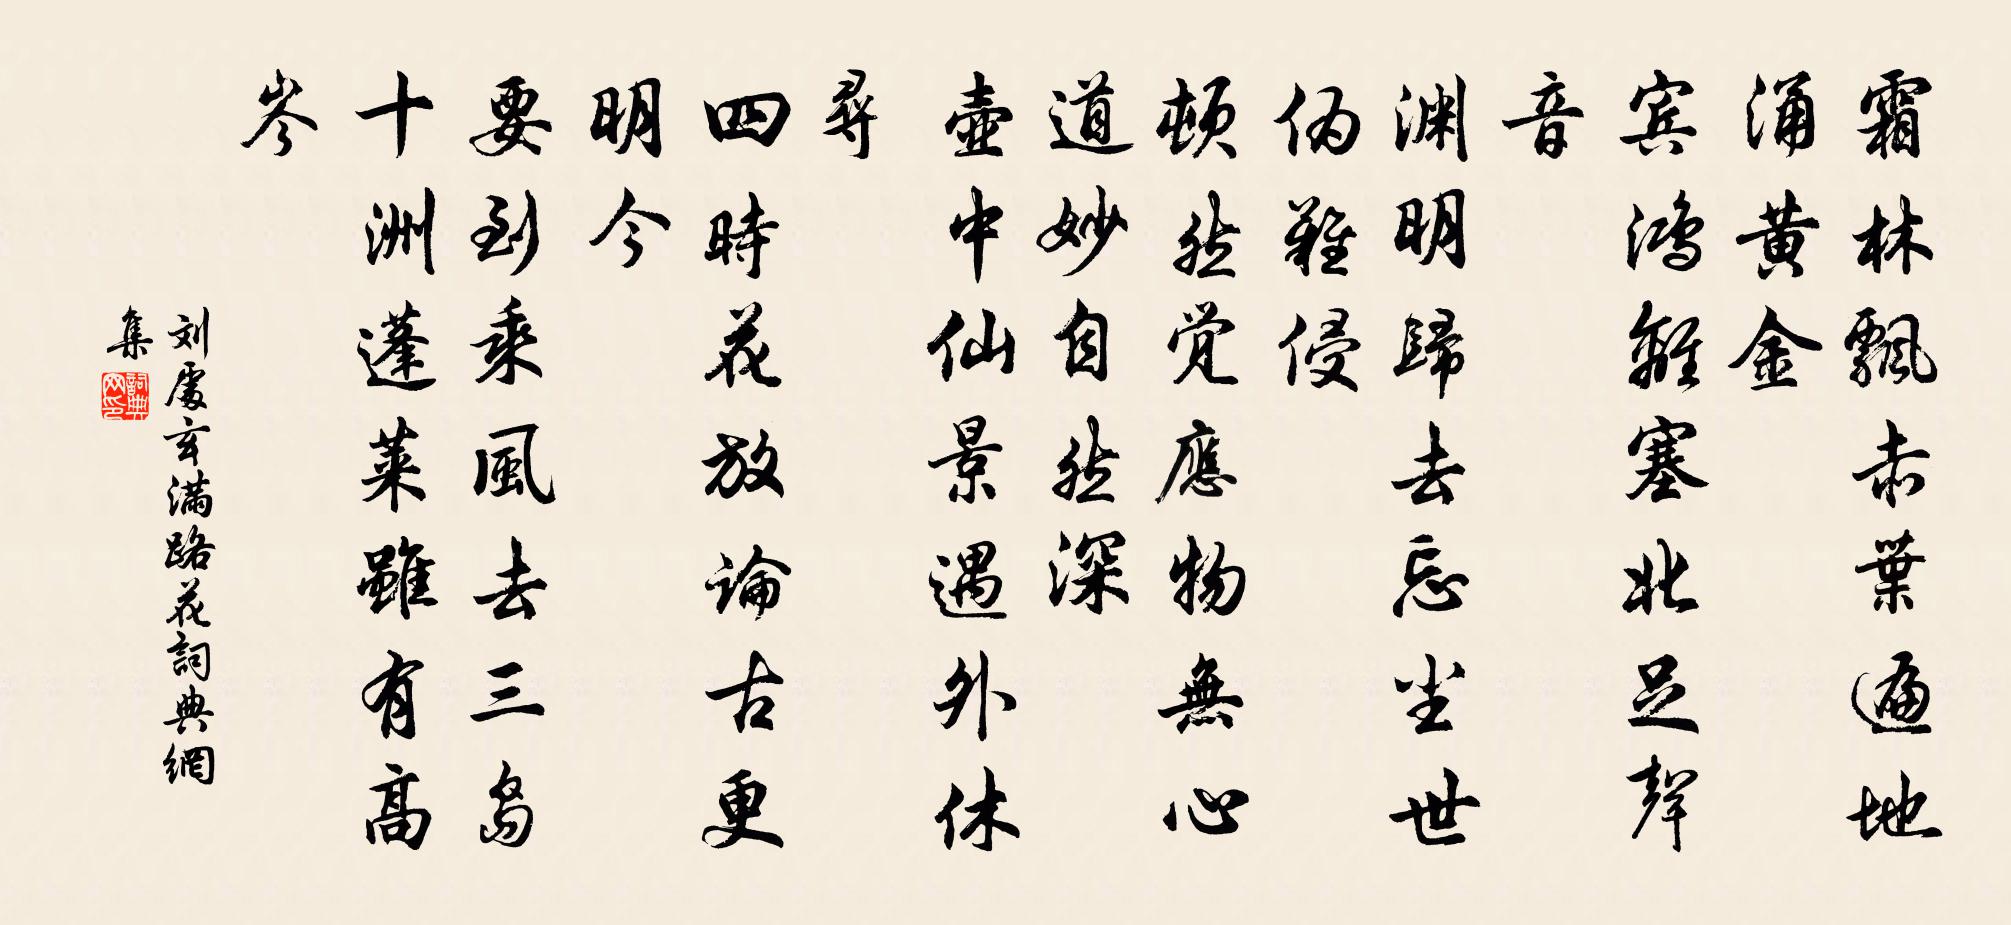 霜林飄赤葉遍地
涌黄金
宾鸿離塞北足聲
音
渊明歸去忘坐世
伪難侵
頓然觉應物無心
道妙自然深
壺中仙景遇外休
尋
四時花放論古更
明今
要到乘風去三岛
十洲蓬萊雖有高
岑
刘處玄满路花詞典網
集
詞典网印